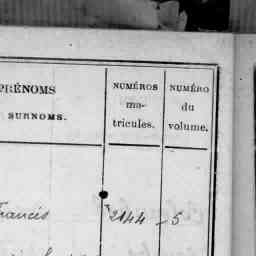 PRÉNOMS
SURNOMS.
NUMÉROS
ma-
tricules.
NUMÉRO
du
volume.
Francis 2144 - 5